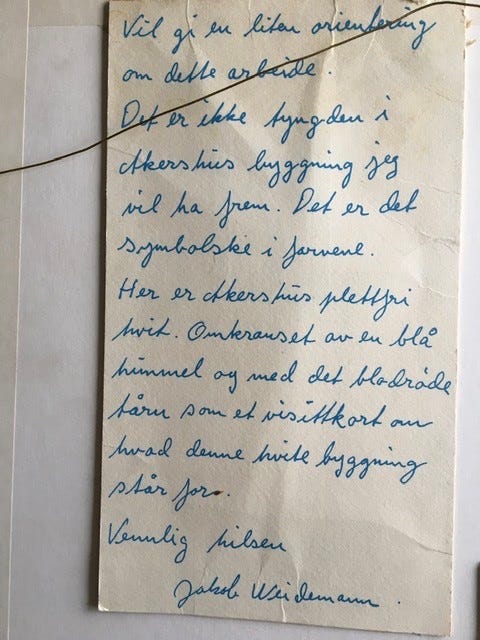 Vil gi en liten orientering
om dette arbeide.
Det er ikke tyngden i
Akershus byggning jeg
vil ha frem. Det er det
symbolske i farvene.
Her er Akershus plettfri
hvit. Omkranset av en blå
himmel og med det blodröde
tårn som et visittkort om
hvad denne hvite byggning
står for.
Vennlig hilsen
Jakob Weidemann.